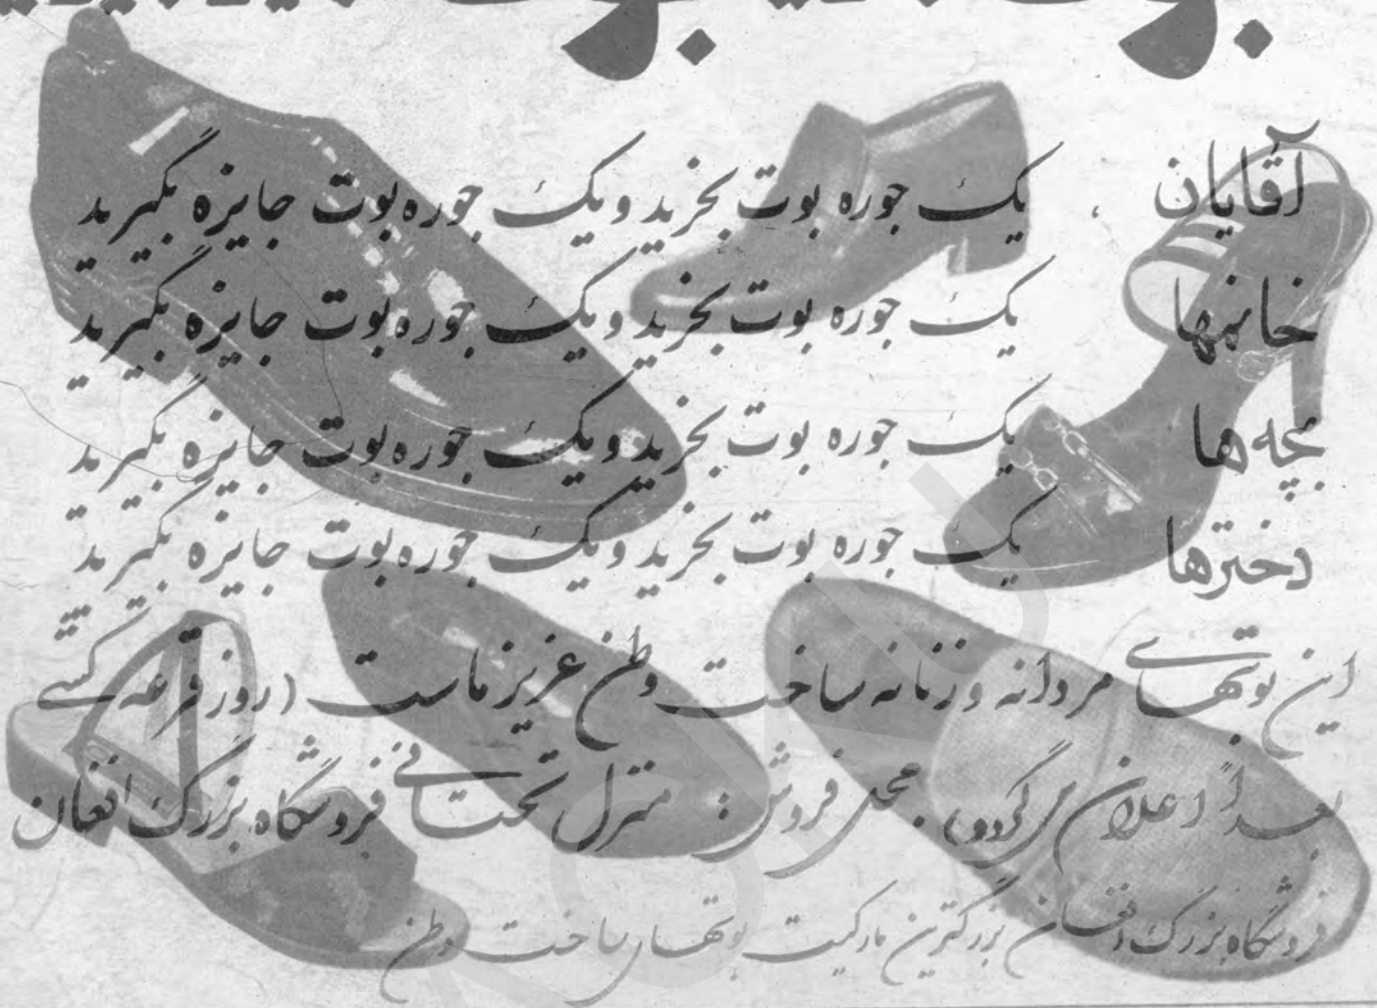 آقایان یک جوره بوت بخرید و یک جوره بوت جایزه بگیرید
خانمها یک جوره بوت بخرید و یک جوره بوت جایزه بگیرید
بچه ها یک جوره بوت بخرید و یک جوره بوت جایزه بگیرید
دخترها یک جوره بوت بخرید و یک جوره بوت جایزه بگیرید
این بوتهای مردانه و زنانه ساخت وطن عزیز ماست (روز قرعه کشی
بعداً اعلان میگردد) محل فروش: منزل تحتانی فروشگاه بزرگ افغان
فروشگاه بزرگ افغان بزرگترین مارکیت بوتهای ساخت وطن